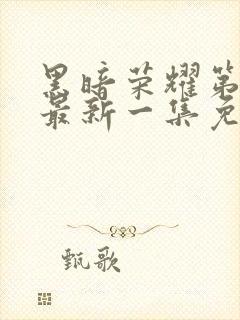 黑暗荣耀第
最新一集免
甄歌